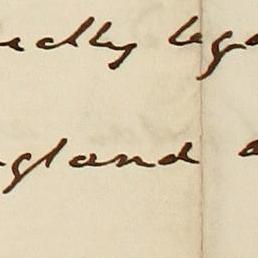 edly lega
ngland a